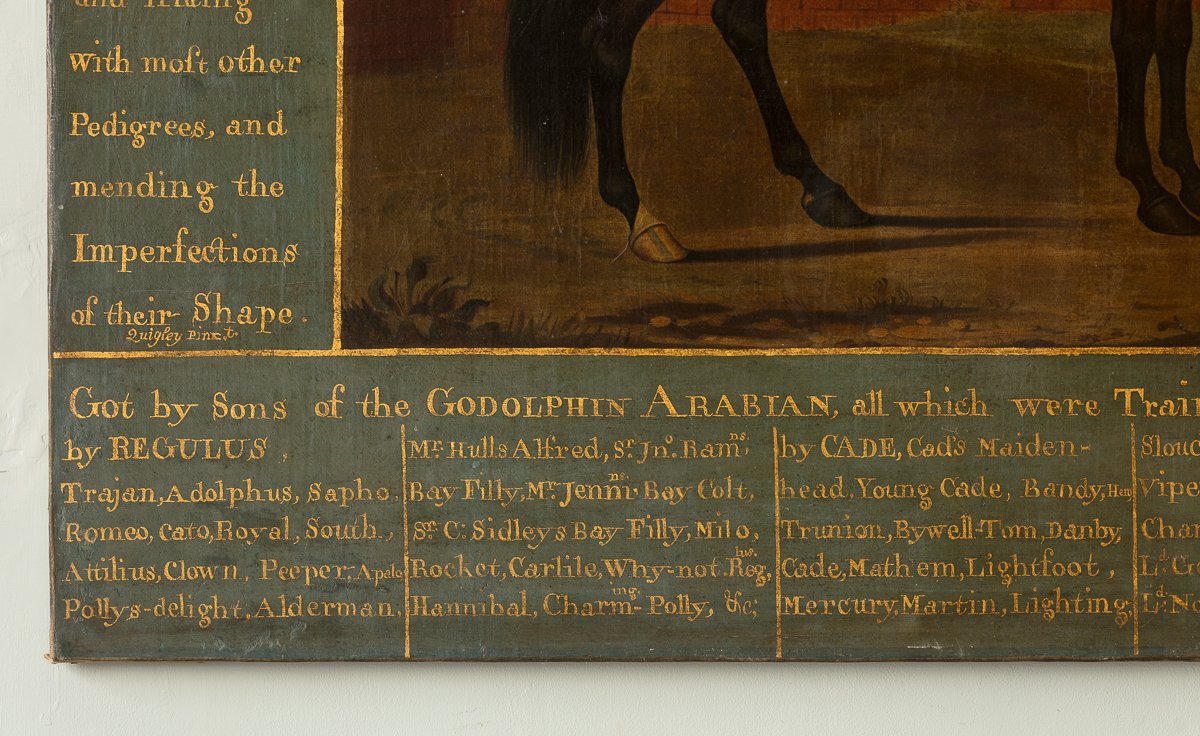 with moſt other
Pedigrees, and
mending the
Imperfections
of their Shape.
Quigley Pinx.t.
Got by Sons of the GODOLPHIN ARABIAN, all which were Train
by REGULUS,
Trajan, Adolphus, Sapho,
Romeo, Cato, Royal, South.,
Attilius, Clown, Peeper, Apalo
Pollys-delight, Alderman,
Mr. Hulls Alfred, Sr. Jno. Ramns.
Bay Filly, Mr. Jennins. Bay Colt,
Sr. C: Sidleys Bay Filly, Milo,
Rocket, Carlile, Why-not. Reglus.
Hannibal, Charming- Polly, &c;
by CADE, Cad's Maiden-
head, Young Cade, Bandy, Hen
Trunion, Bywell-Tom, Danby,
Cade, Mathem, Lightfoot,
Mercury, Martin, Lighting,
Slouc
Vipe
Char
Ld. Go
Ld. No